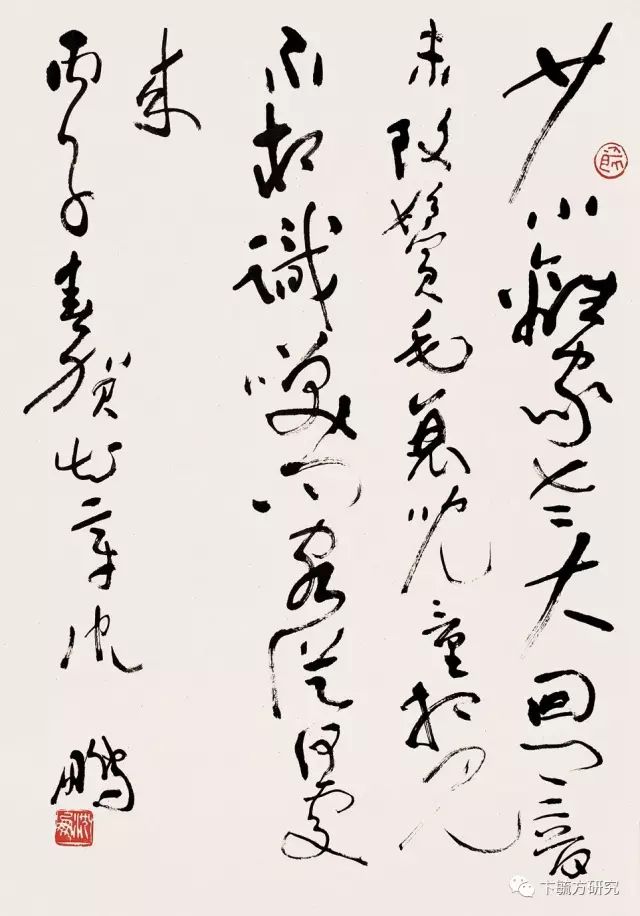 少小離家老大回乡音
未改鬢毛衰兒童相見
不相識咲问客從何處
来
丙子春賀知章句 沈
鵬
卞毓方研究